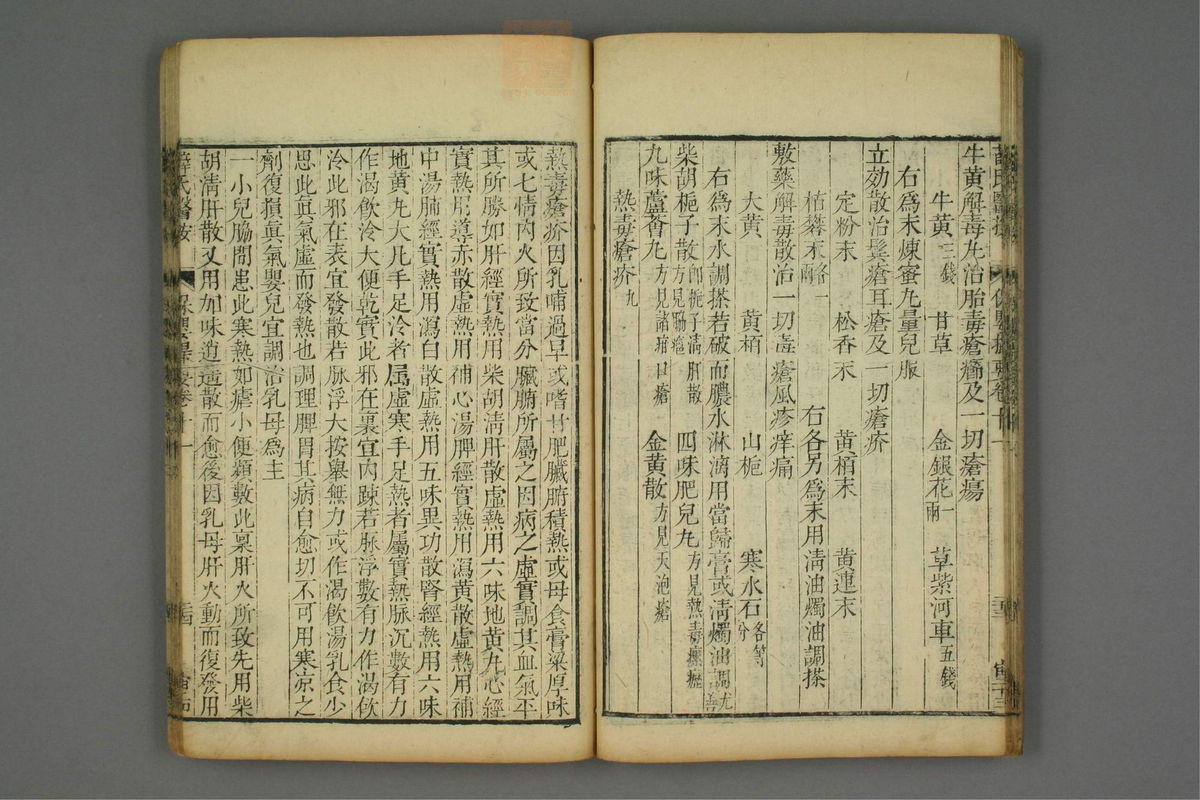 牛黄解毒丸治胎毒瘡癤及一切瘡瘍
牛黄三錢 甘草 金銀花一兩 草紫河車五錢
右爲末煉蜜丸量兒服
立効散治鬓瘡耳瘡及一切瘡疥
定粉末 松香末 黄栢末 黄連末
枯礬末各一兩 右各另爲末用清油燭油調搽
敷藥解毒散治一切毒瘡風疹痒痛
大黄 黄栢 山梔 寒水石各等分
右爲末水調搽若破而膿水淋漓用當歸膏或清燭油調尤善
柴胡梔子散卽梔子清肝散方見脇癰 四味肥兒丸方見熱毒瘰癧
九味蘆薈丸方見諸疳口瘡 金黄散方見天泡瘡
熱毒瘡疥九
熱毒瘡疥因乳哺過早或嗜甘肥臟腑積熱或母食膏粱厚味
或七情内火所致當分臟腑所屬之因病之虛實調其血氣平
其所勝如肝經實熱用柴胡清肝散虛熱用六味地黄丸心經
實熱用導赤散虛熱用補心湯脾經實熱用瀉黄散虛熱用補
中湯肺經實熱用瀉白散虛熱用五味異功散腎經熱用六味
地黄丸大凡手足冷者属虛寒手足熱者屬實熱脉沉數有力
作渴飲冷大便乾實此邪在裏宜内踈若脉浮數有力作渴飲
冷此邪在表宜發散若脉浮大按舉無力或作渴飲湯乳食少
思此眞氣虛而發熱也調理脾胃其病自愈切不可用寒凉之
劑復損眞氣嬰兒宜調治乳母爲主
一小兒脇間患此寒熱如瘧小便頻數此稟肝火所致先用柴
胡清肝散又用加味逍遥散而愈後因乳母肝火動而復發用
薛氏醫按 保嬰撮要卷十一